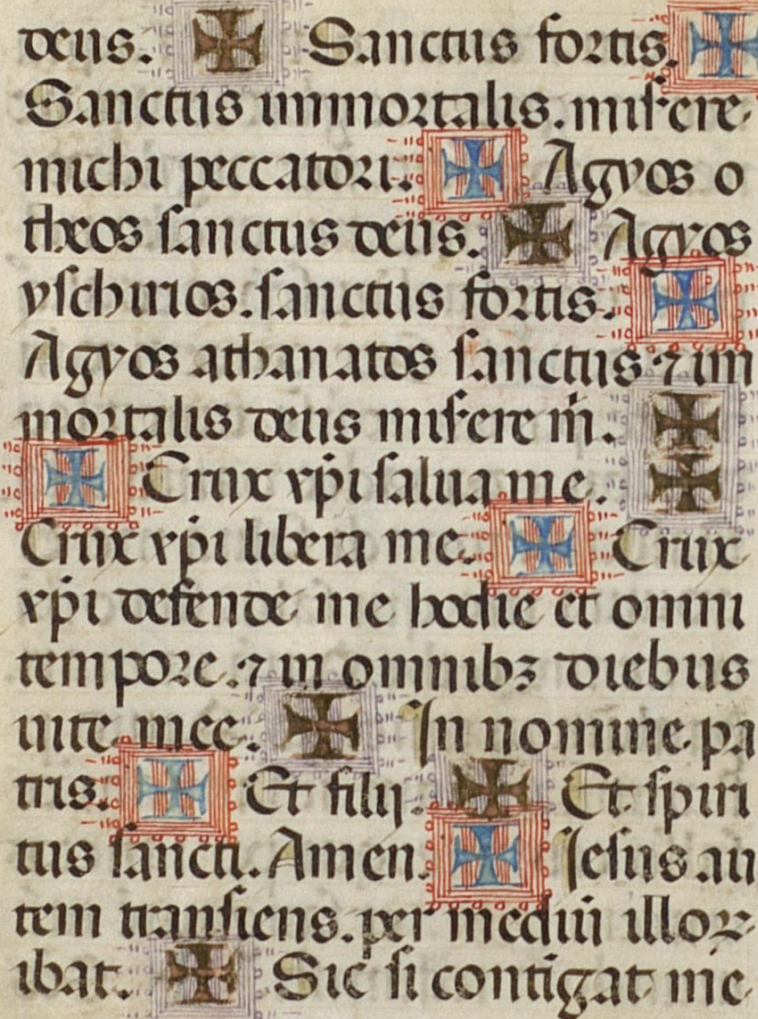 deus. ✠ Sanctus fortis. ✠
Sanctus immortalis. misere
michi peccatori. ✠ Agyos o
theos sanctus deus. ✠ Agyos
yschirios. sanctus fortis. ✠
Agyos athanatos sanctus ⁊ im
mortalis deus misere m̄. ✠
✠ Crux xp̄i salua me. ✠
Crux xp̄i libera me. ✠ Crux
xp̄i defende me hodie et omni
tempore. ⁊ in omnibꝫ diebus
uite mee. ✠ In nomine pa
tris. ✠ Et filij. ✠ Et spiri
tus sancti. Amen. ✠ Jesus au
tem transiens. per mediū illoꝝ
ibat. ✠ Sic si contigat me